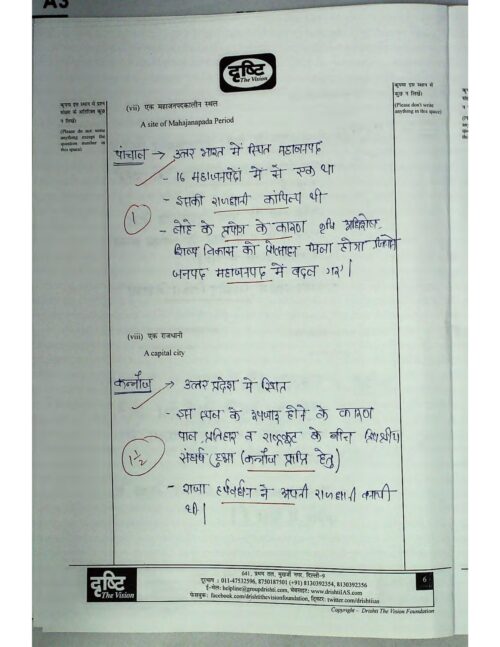 A3
दृष्टि
The Vision
कृपया इस स्थान में प्रश्न
संख्या के अतिरिक्त कुछ
न लिखें।
(Please do not write
anything except the
question number in
this space)
कृपया इस स्थान में
कुछ न लिखें।
(Please don't write
anything in this space)
(vii) एक महाजनपदकालीन स्थल
A site of Mahajanapada Period
पांचाल → उत्तर भारत में स्थित महाजनपद
- 16 महाजनपदों में से एक था
- इसकी राजधानी कांपिल्य थी
1
- लोहे के प्रयोग के कारण कृषि अधिशेष,
शिल्प विकास को प्रोत्साहन मिला होगा जिससे
जनपद महाजनपद में बदल गए।
(viii) एक राजधानी
A capital city
कन्नौज → उत्तर प्रदेश में स्थित
- इस स्थल के उपजाऊ होने के कारण
पाल, प्रतिहार व राष्ट्रकूट के बीच त्रिपक्षीय
संघर्ष हुआ (कन्नौज प्राप्ति हेतु)
1 1/2
- राजा हर्षवर्धन ने अपनी राजधानी बनायी
थी।
दृष्टि
The Vision
641, प्रथम तल, मुखर्जी नगर, दिल्ली-9
दूरभाष : 011-47532596, 8750187501 (+91) 8130392354, 8130392356
ई-मेल: helpline@groupdrishti.com, वेबसाइट: www.drishtiIAS.com
फेसबुक: facebook.com/drishtithevisionfoundation, ट्विटर: twitter.com/drishtiias
6
Copyright – Drishti The Vision Foundation